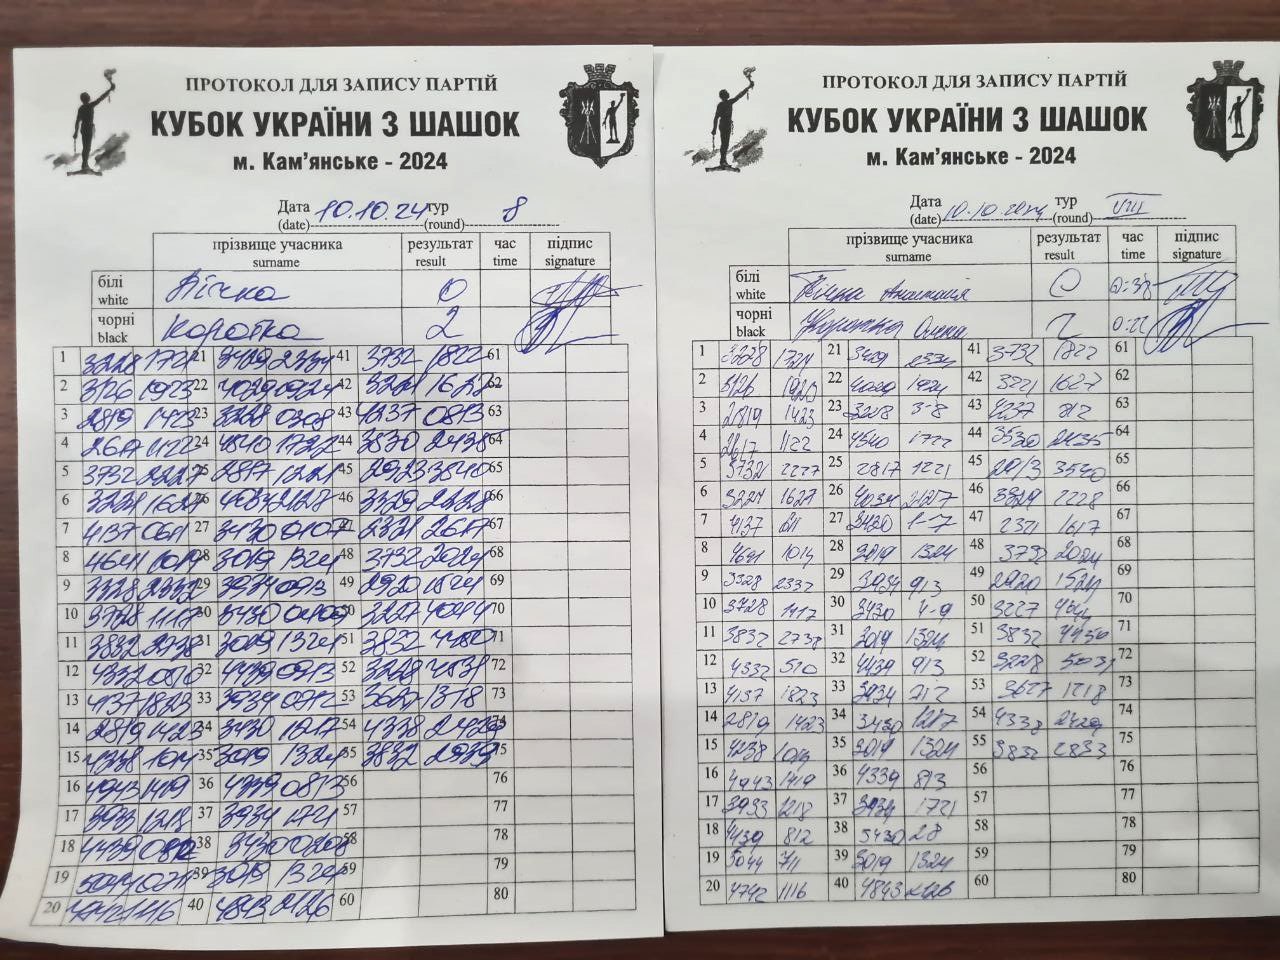 ПРОТОКОЛ ДЛЯ ЗАПИСУ ПАРТІЙ
КУБОК УКРАЇНИ З ШАШОК
м. Кам'янське - 2024
Дата 10.10.24 тур 8
(date) (round)
прізвище учасника результат час підпис
surname result time signature
білі
white Пічка 0
чорні
black Коротка 2
1 3228 21 41 3732 1822 61
2 3126 1923 22 42 62
3 2819 1423 23 43 63
4 2617 1122 24 4540 1722 44 64
5 3732 2227 25 2817 1221 45 65
6 1627 26 46 3329 2228 66
7 4137 27 3430 0107 47 2321 2617 67
8 4641 28 3019 1324 48 3732 2024 68
9 3328 29 3934 0913 49 2920 1524 69
10 3728 1117 30 3430 50 3227 70
11 3832 2738 31 3019 1324 51 3832 71
12 4332 32 4439 0913 52 3228 72
13 4137 1823 33 3934 0712 53 3627 1318 73
14 2819 1423 34 3430 1217 54 4338 2429 74
15 35 3019 1324 55 3832 75
16 4943 1419 36 4339 0813 56 76
17 3933 1218 37 3934 1721 57 77
18 4439 0812 38 3430 0208 58 78
19 5044 0711 39 3019 1324 59 79
20 4742 1116 40 4843 2126 60 80
ПРОТОКОЛ ДЛЯ ЗАПИСУ ПАРТІЙ
КУБОК УКРАЇНИ З ШАШОК
м. Кам'янське - 2024
Дата 10.10.2024 тур VIII
(date) (round)
прізвище учасника результат час підпис
surname result time signature
білі
white Пічка Анастасія 0 0:38
чорні
black Коротка Олена 2 0:22
1 3228 1721 21 41 3732 1822 61
2 3126 1920 22 1924 42 3221 1627 62
3 2819 1423 23 3228 3-8 43 4237 812 63
4 2617 1122 24 4540 1722 44 3530 2435 64
5 3732 2227 25 2817 1221 45 3540 65
6 1627 26 46 3329 2228 66
7 4137 27 3430 1-7 47 2321 1617 67
8 4641 1014 28 3019 1324 48 3732 2024 68
9 3328 29 3934 913 49 2920 1524 69
10 3728 1117 30 3430 4-9 50 3227 70
11 3832 2738 31 3019 1324 51 3832 71
12 4332 510 32 4439 913 52 3228 72
13 4137 1823 33 3934 712 53 3627 1218 73
14 2819 1423 34 3430 1217 54 4338 2429 74
15 35 3019 1324 55 3832 2833 75
16 4943 1419 36 4339 813 56 76
17 3933 1218 37 3934 1721 57 77
18 4439 812 38 3430 28 58 78
19 5044 711 39 3019 1324 59 79
20 4742 1116 40 4843 2126 60 80